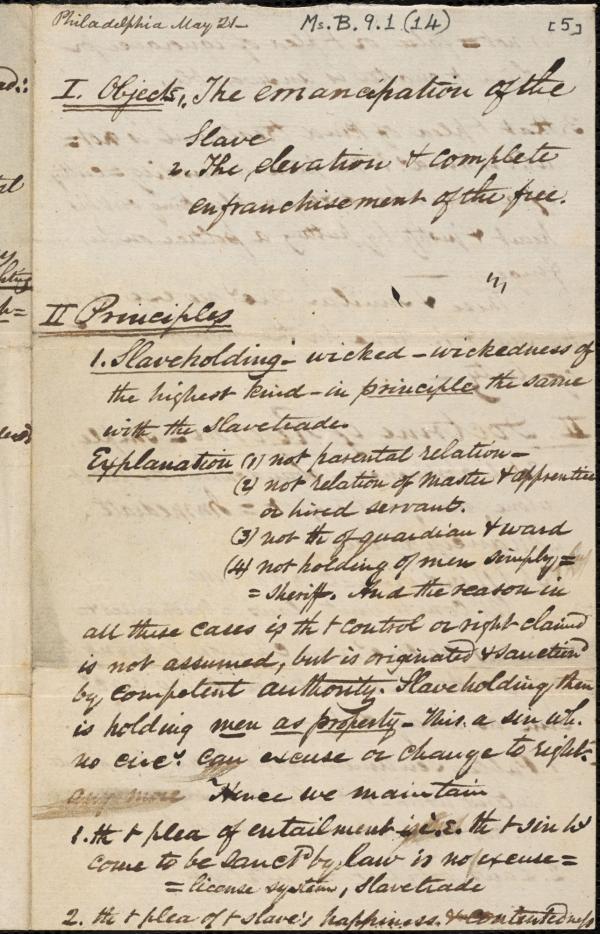 Philadelphia May 21—
Ms. B. 9.1 (14)
[5]
I. Objects, 1. The emancipation of the
Slave
2. The elevation & complete
enfranchisement of the free.
II Principles
1. Slaveholding - wicked - wickedness of
the highest kind - in principle the same
with the slavetrade.
Explanation (1) not parental relation -
(2) not relation of master & apprentice
or hired servant.
(3) not th of guardian & ward
(4) not holding of men simply =
= sheriff. And the reason in
all these cases is th t control or right claimed
is not assumed, but is originated & sanctiond
by competent authority. Slaveholding then
is holding men as property - This. a sin wh.
no circs. can excuse or change to right.
any more Hence we maintain
1. th t plea of entailment i.e. th t sin hs
come to be sanctd by law is no excuse =
= license system, slavetrade
2. th t plea of t slave's happiness & contentedness